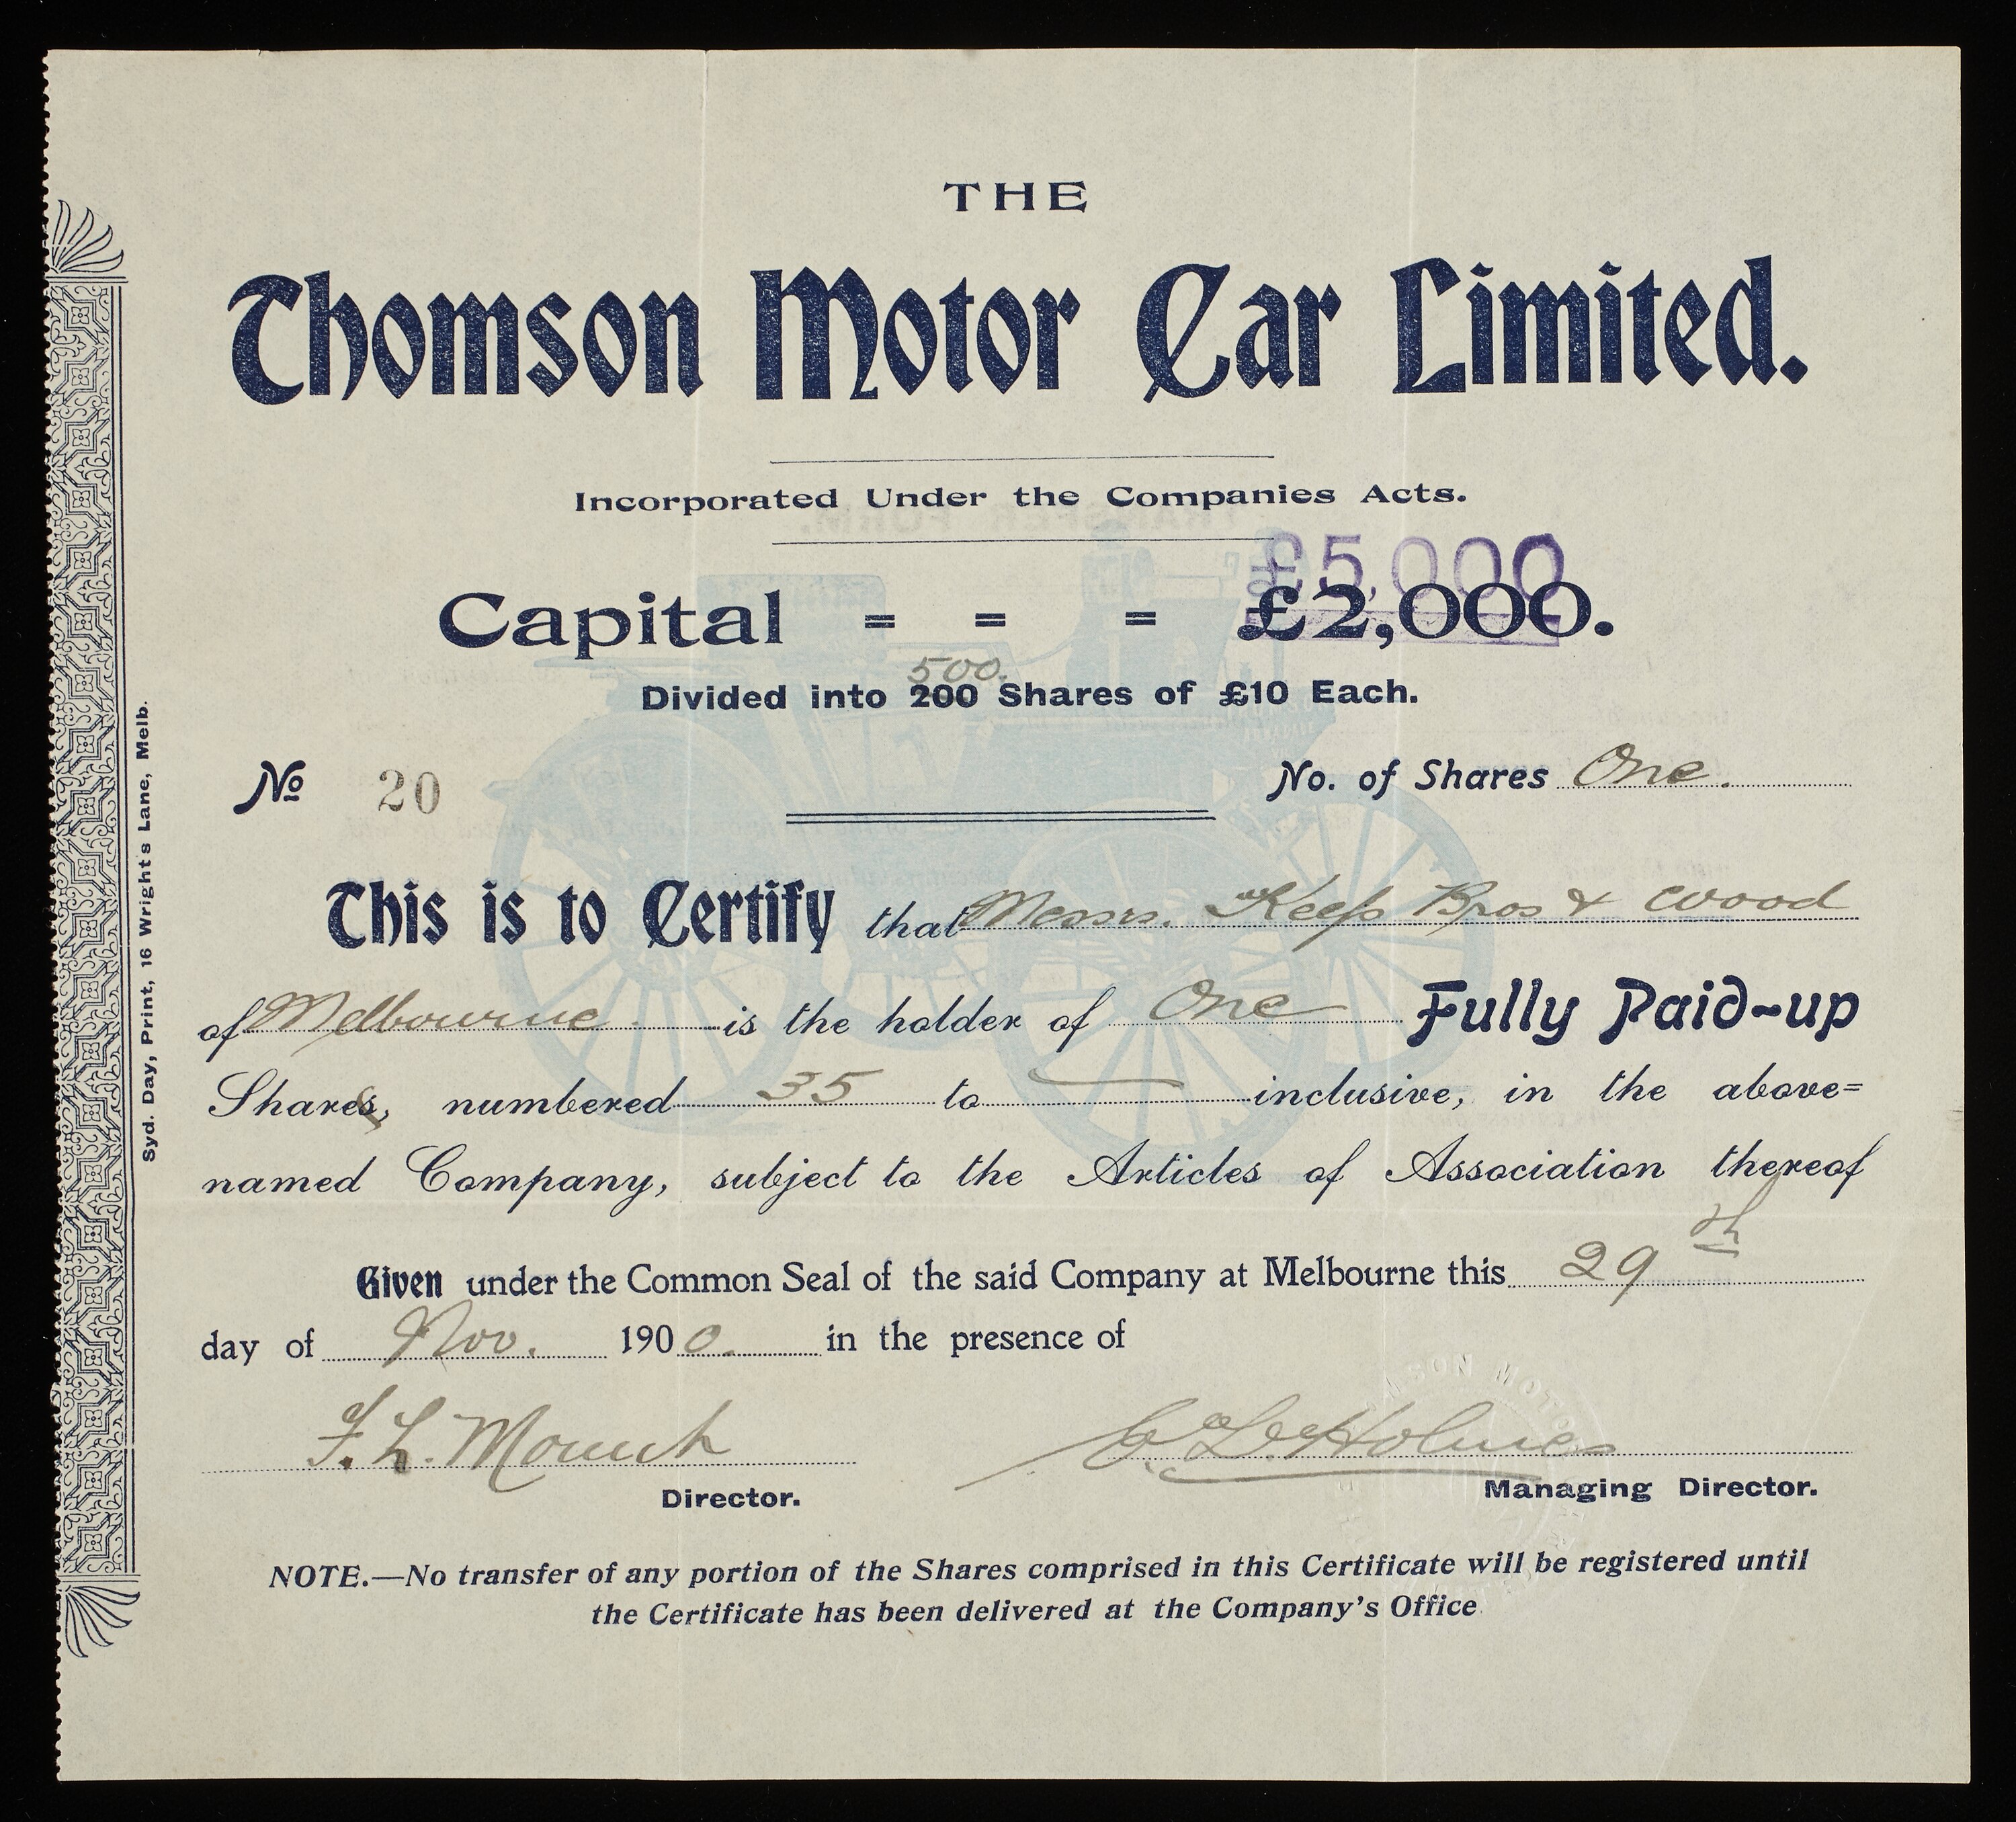 THE
Thomson Motor Car Limited.
Incorporated Under the Companies Acts.
£5,000
Capital = = = £2,000.
500.
Divided into 200 Shares of £10 Each.
No 20
No. of Shares One.
This is to Certify that Messrs. Keep Bros & Wood
of Melbourne. is the holder of One Fully Paid-up
Shares, numbered 35 to — inclusive, in the above=
named Company, subject to the Articles of Association thereof
Given under the Common Seal of the said Company at Melbourne this 29th
day of Nov. 1900. in the presence of
F. L. Mouch
Director.
Holmes
Managing Director.
NOTE.—No transfer of any portion of the Shares comprised in this Certificate will be registered until
the Certificate has been delivered at the Company's Office
Syd. Day, Print, 16 Wright's Lane, Melb.